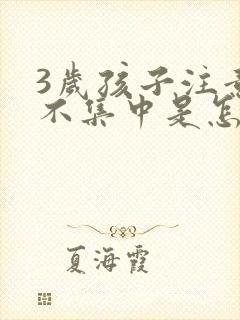 3歲孩子注意
不集中是怎
夏海霞